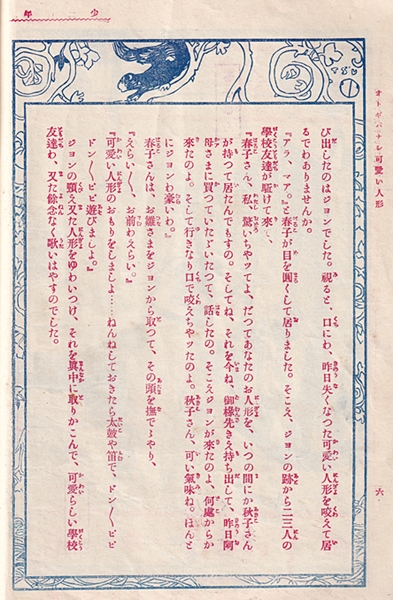 少年
オトギバナシ可愛い人形
六
び出したのはジョンでした。視ると、口にわ、昨日失くなつた可愛い人形を咬えて居
るでわありませんか。
『アラ、マア。』と春子が目を圓くして居りました。そこえ、ジョンの跡から二三人の
學校友達が駈けて來、
『春子さん、私、驚いちやツてよ、だつてあなたのお人形を、いつの間にか秋子さん
が持つて居たんでもすの。そしてね、それを今ね、御椽先きえ持ち出して、昨日阿
母さまに買つていたゞいたつて、話したの。そこえジョンが來たのよ、何處からか
來たのよ。そして行きなり口で咬えちやツたのよ。秋子さん、可い氣味ね。ほんと
にジョンわ豪いわ。』
春子さんは、お雛さまをジョンから取つて、その頭を撫でゝやり、
『えらい〳〵、お前わえらい。』
『可愛い人形のおもりをしましよ……ねんねしておきたら太皷や笛で、ドン〳〵ピピ
ドン〳〵ピピ遊びましよ。』
ジョンの頸え又た人形をゆわいつけ、それを眞中に取りかこんで、可愛らしい學校
友達わ、又た餘念なく歌いはやすのでした。